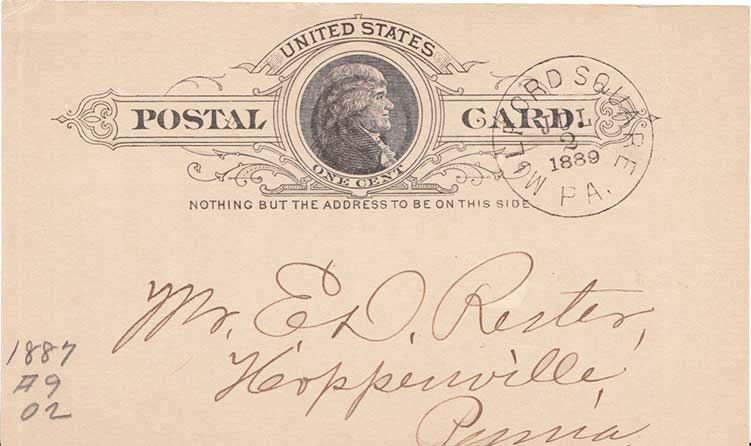 UNITED STATES
POSTAL CARD.
ONE CENT
NOTHING BUT THE ADDRESS TO BE ON THIS SIDE
MILFORD SQUARE
JUL
2
1889
PA.
Mr. E. D. Rester,
Hoppenville,
Penna
1887
#9
02